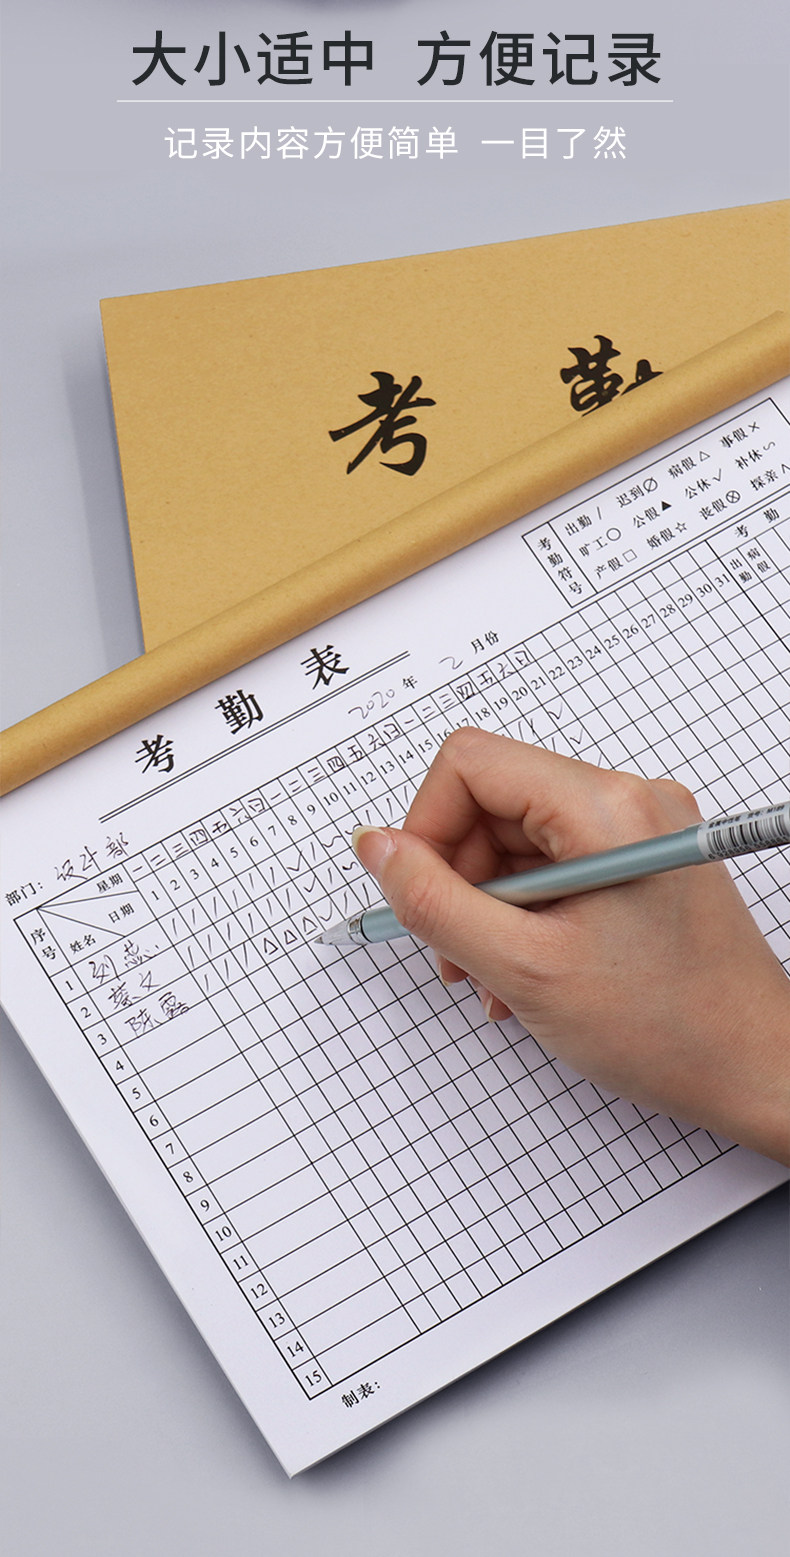 大小适中 方便记录
记录内容方便简单 一目了然
考勤
考勤符号
出勤/ 迟到∅ 病假△ 事假×
旷工○ 公假▲ 公休√ 补休∽
产假□ 婚假☆ 丧假⊗ 探亲∧
考勤表
2020年 2月份
部门: 设计部
星期 一 二 三 四 五 六 日 一 二 三 四 五 六 日 一 二 三 四 五 六 日
考勤
序号 姓名 日期 1 2 3 4 5 6 7 8 9 10 11 12 13 14 15 16 17 18 19 20 21 22 23 24 25 26 27 28 29 30 31 出勤 病假
1 刘燕
2 蔡文
3 陈露
4
5
6
7
8
9
10
11
12
13
14
15
制表: